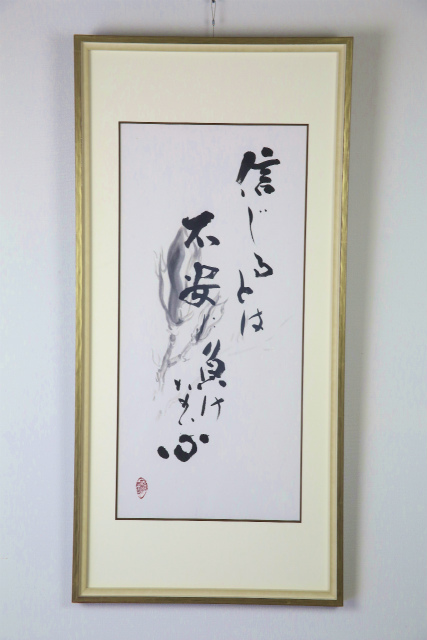 信じるとは
不安に負け
ない心